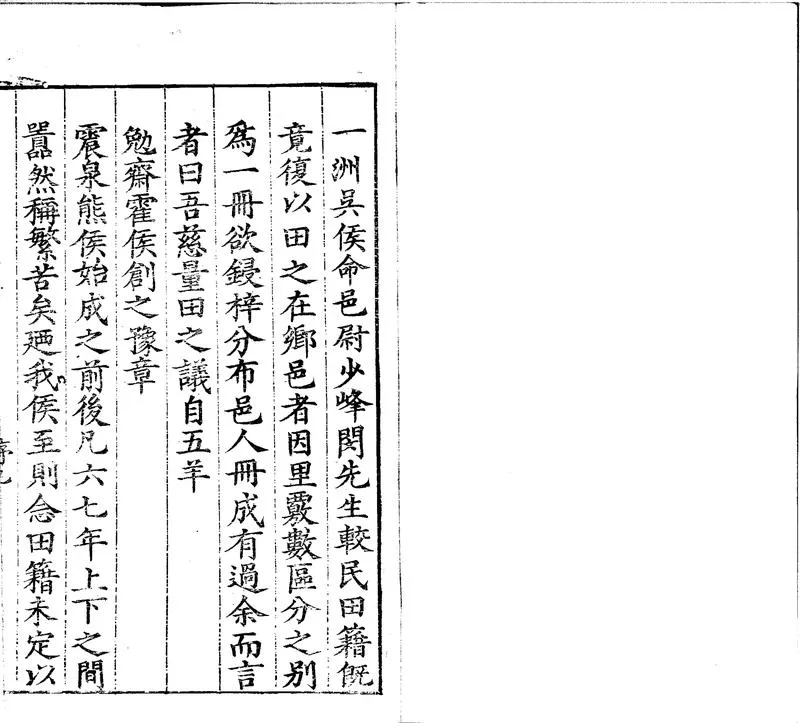 一洲吳侯命邑尉少峰閔先生較民田籍旣
竟復以田之在鄉邑者因里覈數區分之別
爲一冊欲鋟梓分布邑人冊成有過余而言
者曰吾慈量田之議自五羊
勉齋霍侯創之豫章
震泉熊侯始成之前後凡六七年上下之間
囂然稱繁苦矣廼我侯至則念田籍未定以